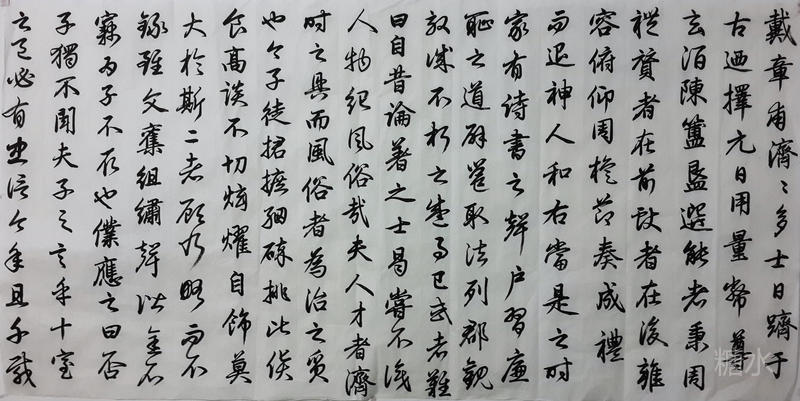 戴章甫濟〻多士日躋于
古迺擇元日用量幣尊
玄酒陳簠簋選能者秉周
禮贊者在前者在後雍
容俯仰周旋節奏成禮
而退神人和右當是之時
家有詩書之聲户習廉
恥之道辟取法列郡觀
效誠不朽之盛事已或者難
曰自昔論著之士曷嘗不識
人物紀風俗哉夫人才者濟
時之具而風俗者為治之質
也今子徒捃摭細碎挑此俟
食高談不切炫燿自飾莫
大於斯二者顧乃略而不
錄雖文組繡聲諧金石
竊為子不取也僕應之曰否
子獨不聞夫子之言乎十室
之邑必有忠信今年且千載
糖水